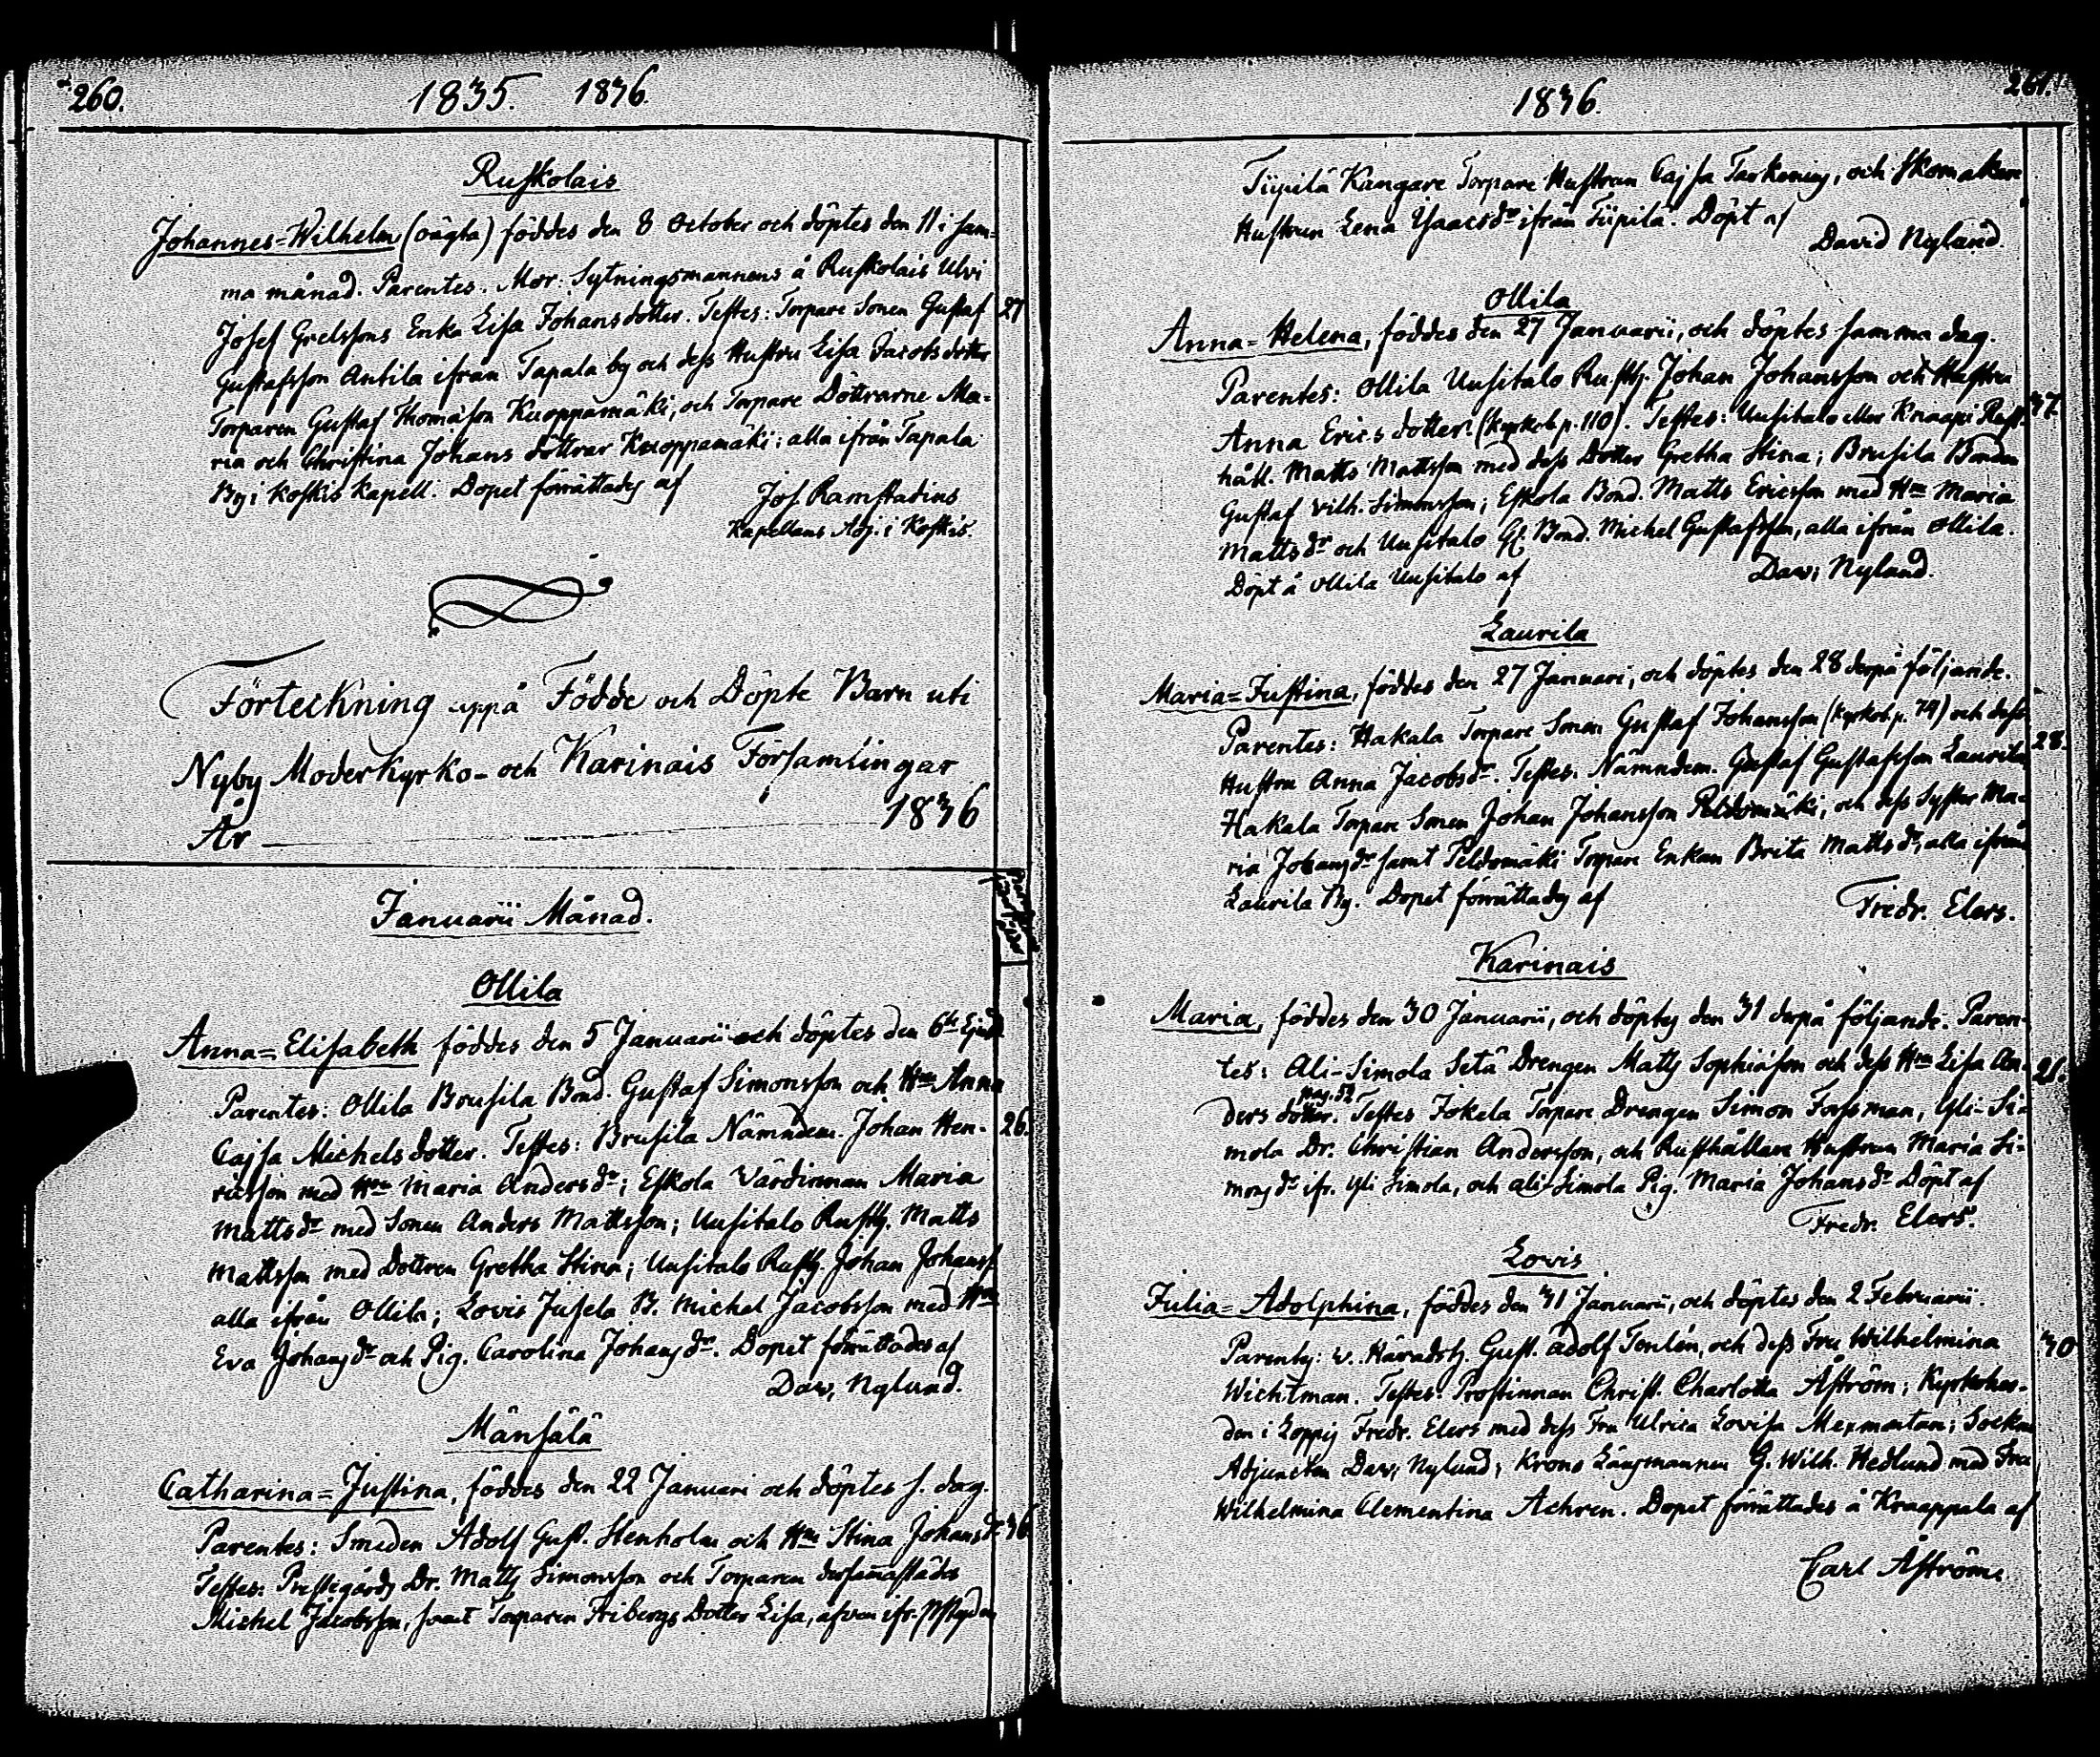 260.
1835. 1836.
Ruskolais
Johannes=Wilhelm (oägta) föddes den 8 October och döptes den 11 i sam-
ma månad. Parentes. Mor: Sytningsmannens å Ruskolais Ulvi
Josef Grelssons Enka Lisa Johansdotter. Testes: Torpare Sonen Gustaf
27
Gustafsson Antila ifrån Tapala by och dess Hustru Lisa Jacobsdotter
Torparen Gustaf Thomasson Kuoppamäki, och Torpare Döttrarne Ma-
ria och Christina Johans döttrar Kuoppamäki; alla ifrån Tapala
By i Koskis Kapell. Dopet förrättades af
Jos. Ramstadius
Kapellans Adj. i Koskis.
Förteckning uppå Födde och Döpte Barn uti
Nyby Moderkyrko- och Karinais Församlingar
År 1836
Januarii Månad.
Ollila
Anna=Elisabeth föddes den 5 Januarii och döptes den 6te Ejusd.
Parentes: Ollila Brusila Bond. Gustaf Simonsson och Hru Anna
Cajsa Michelsdotter. Testes: Brusila Nämndem. Johan Hen-
26.
ricsson med Hru Maria Andersdr; Eskola Värdinnan Maria
Mattsdr med Sonen Anders Mattsson; Uusitalo Rusth. Matts
Mattsson med Dottren Gretha Stina; Uusitalo Rusth. Johan Johanss.
alla ifrån Ollila; Lovis Jusela B. Michel Jacobsson med Hru
Eva Johansdr och Pig. Carolina Johansdr. Dopet förrättades af
Dav. Nylund.
Mänsälä
Catharina=Justina, föddes den 22 Januari och döptes s. dag.
Parentes: Smeden Adolf Gust. Stenholm och Hru Stina Johansdr
36
Testes: Prestegårds Dr. Matts Simonsson och Torparen dersammastädes
Michel Jacobsson, samt Torparen Fribergs Dotter Lisa, äfven ifr.
261.
1836.
Tiipilä Kangare Torpare Hustrun Cajsa Tarkening, och Skomakare
Hustrun Lena Isaacsdr ifrån Tiipilä. Döpt af
David Nylund.
Ollila
Anna=Helena, föddes den 27 Januarii, och döptes samma dag.
Parentes: Ollila Uusitalo Rusth. Johan Johansson och Hustru
37.
Anna Ericsdotter. (Kyrkob. p. 110). Testes: Uusitalo eller Knaapi Rust-
håll. Matts Mattsson med dess Dotter Gretha Stina; Brusila Bonden
Gustaf Vilh. Simonsson; Eskola Bond. Matts Ericsson med Hru Maria
Mattsdr och Uusitalo Gl. Bond. Michel Gustafsson, alla ifrån Ollila.
Döpt å Ollila Uusitalo af
Dav. Nylund.
Laurila
Maria=Justina, föddes den 27 Januari, och döptes den 28 derpå följande.
Parentes: Hakala Torpare Sonen Gustaf Johansson (Kyrkob. p. 74) och dess
28.
Hustru Anna Jacobsdr. Testes: Nämndem. Gustaf Gustafsson Laurila
Hakala Torpare Sonen Johan Johansson Peldomäki, och dess Syster Ma-
ria Johansdr samt Peldomäki Torpare Enkan Brita Mattsdr, alla ifrån
Laurila By. Dopet förrättades af
Fredr. Elers.
Karinais
Maria, föddes den 30 Januarii, och döptes den 31 derpå följande. Paren-
tes: Ali-Simola Setä Drengen Matts Sophiasson och dess Hru Lisa An-
21.
pag. 52
ders dotter. Testes Jokela Torpare Drengen Simon Forssman, Yli-Si-
mola Dr. Christian Andersson, och Rusthållare Hustrun Maria Si-
monsdr ifr. Yli Simola, och Ali-Simola Pig. Maria Johansdr Döpt af
Fredr. Elers.
Lovis
Julia=Adolphina, föddes den 31 Januarii, och döptes den 2 Februarii.
Parentes: v. Häradsh. Gust. Adolf Tonlén, och dess Fru Wilhelmina
30
Wichtman. Testes: Prostinnan Christ. Charlotta Åström; Kyrkoher-
den i Loppis Fredr. Elers med dess Fru Ulrica Lovisa Mexmontan; Sockne
Adjuncten Dav. Nylund; Krono Länsmannen G. Wilh. Hedlund med Fru
Wilhelmina Clementina Achren. Dopet förrättades å Knaappala af
Carl Åström.